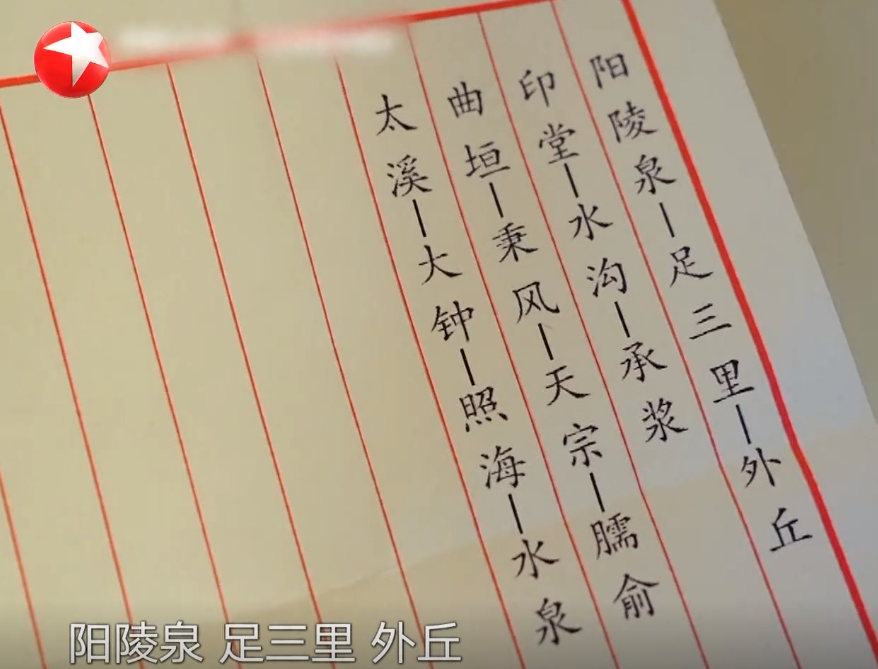 阳陵泉—足三里—外丘
印堂—水沟—承浆
曲垣—秉风—天宗—臑俞
太溪—大钟—照海—水泉
阳陵泉 足三里 外丘